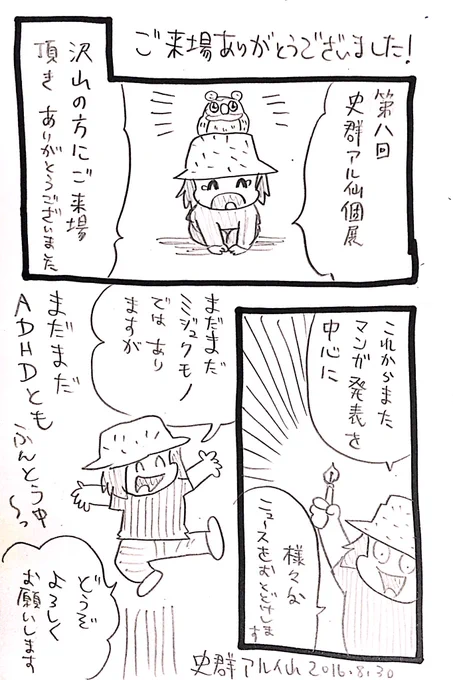 ご来場ありがとうございました!
第八回
史群アル仙個展
沢山の方にご来場
頂き ありがとうございました
これからまた
マンガ発表を
中心に
様々な
ニュースをおとどけします
まだまだ
ミジュクモノ
では あり
ますが
まだまだ
ADHDとも
ふんとうゆ〜っ
どうぞ
よろしく
お願いします
史群アル仙 2016.8.30